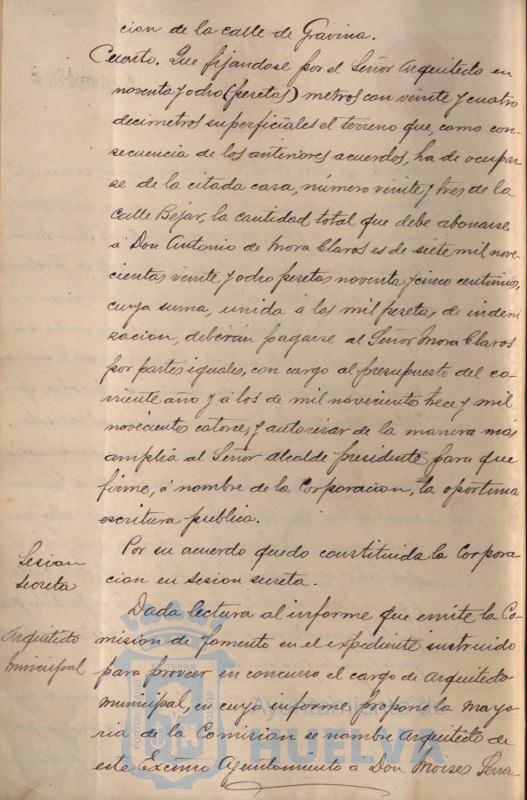 cion de la calle de Gravina.
Cuarto. Que fijandose por el Señor Arquitecto en
noventa y ocho (pesetas) metros con veinte y cuatro
decimetros superficiales el terreno que, como con-
secuencia de los anteriores acuerdos, ha de ocupar-
se de la citada casa, número veinte y tres de la
calle Bejar, la cantidad total que debe abonarse
á Don Antonio de Mora Claros es de siete mil nove-
cientas veinte y ocho pesetas noventa y cinco centimos,
cuya suma, unida á las mil pesetas de indemi-
zacion, deberán pagarse al Señor Mora Claros
por partes iguales, con cargo al presupuesto del co-
rriente año y á los de mil novecientos trece y mil
novecientos catorce, y autorizar de la manera más
amplia al Señor alcalde presidente para que
firme, á nombre de la Corporacion, la oportuna
escritura publica.
Por su acuerdo quedo constituida la Corpora-
cion en sesion secreta.
Sesion
secreta
Dada lectura al informe que emite la Co-
mision de fomento en el expediente instruido
para proveer en concurso el cargo de arquitecto
municipal, en cuyo informe propone la mayo-
ria de la Comision se nombre Arquitecto de
este Excmo Ayuntamiento a Don Moises Serra
Arquitecto
municipal
Ayuntamiento de
HUELVA